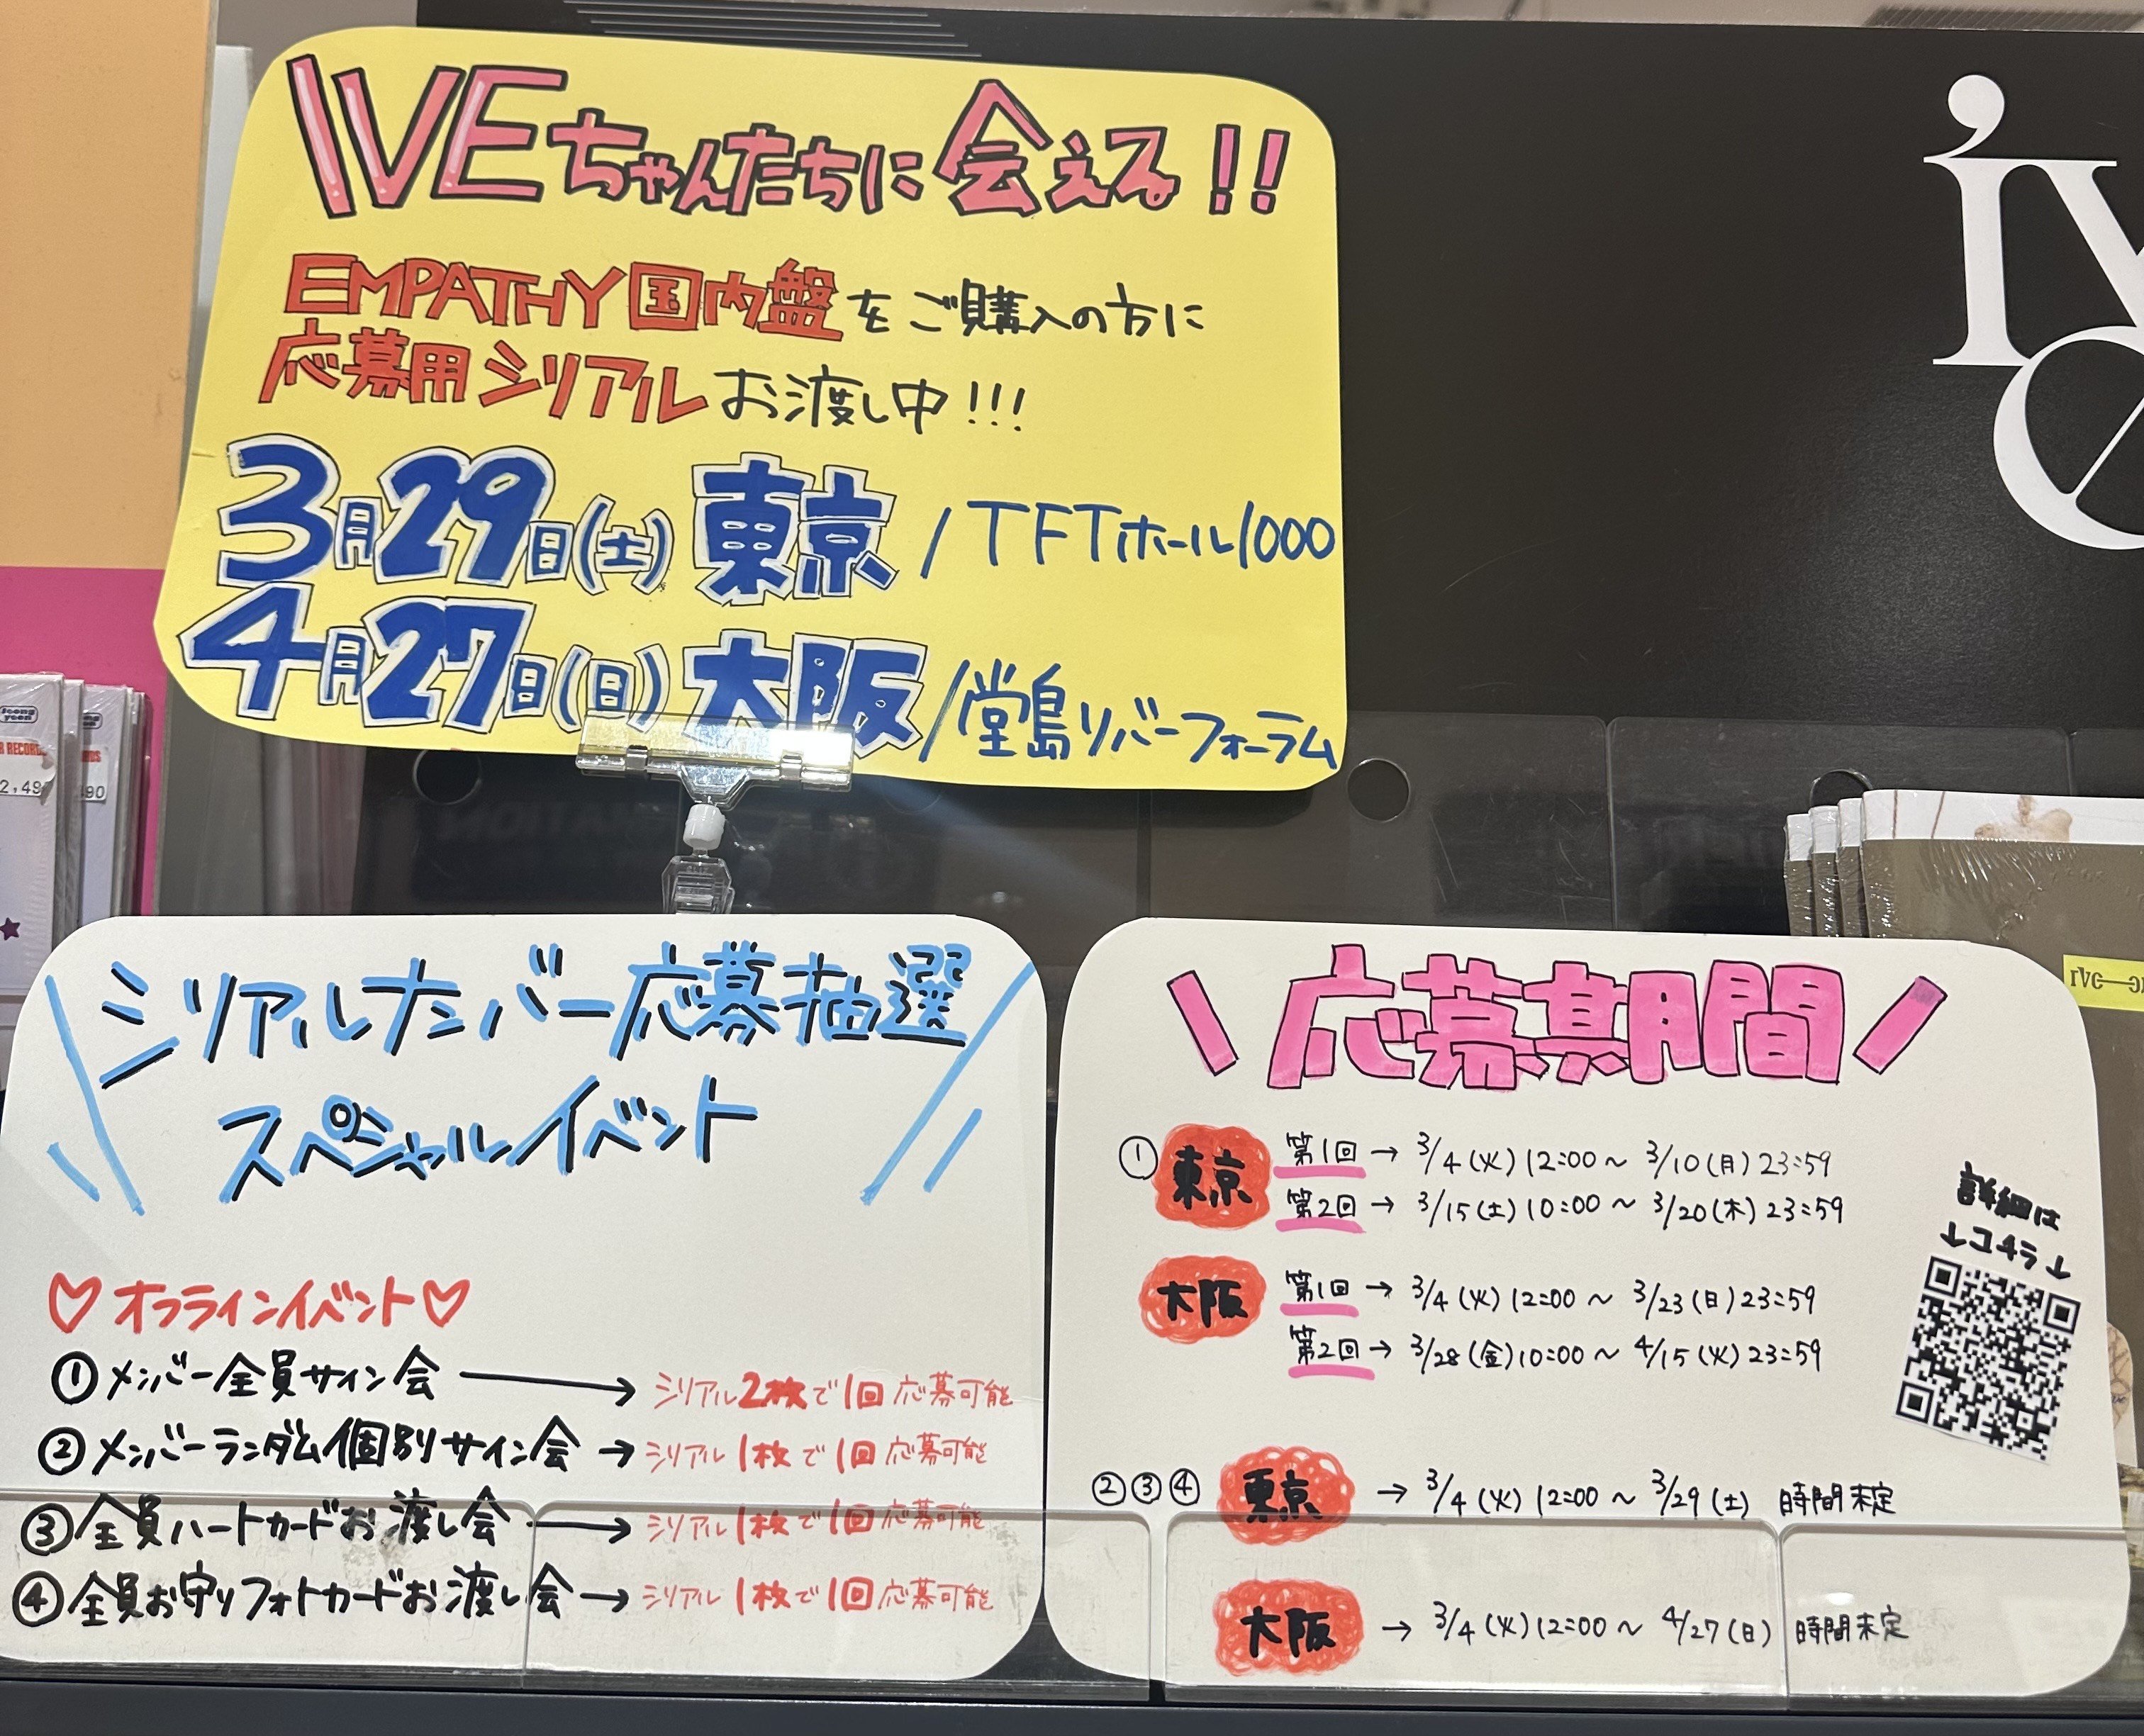 IVEちゃんたちに会える!!
EMPATHY国内盤をご購入の方に
応募用シリアルお渡し中!!!
3月29日(土)東京/TFTホール1000
4月27日(日)大阪/堂島リバーフォーラム
シリアルナンバー応募抽選
スペシャルイベント
♡オフラインイベント♡
①メンバー全員サイン会→シリアル2枚で1回応募可能
②メンバーランダム個別サイン会→シリアル1枚で1回応募可能
③全員ハートカードお渡し会→シリアル1枚で1回応募可能
④全員お守りフォトカードお渡し会→シリアル1枚で1回応募可能
\応募期間/
①東京 第1回→3/4(火)12:00～3/10(月)23:59
第2回→3/15(土)10:00～3/20(木)23:59
大阪 第1回→3/4(火)12:00～3/23(日)23:59
第2回→3/28(金)10:00～4/15(火)23:59
詳細は
↓コチラ↓
②③④東京→3/4(火)12:00～3/29(土)時間未定
大阪→3/4(火)12:00～4/27(日)時間未定